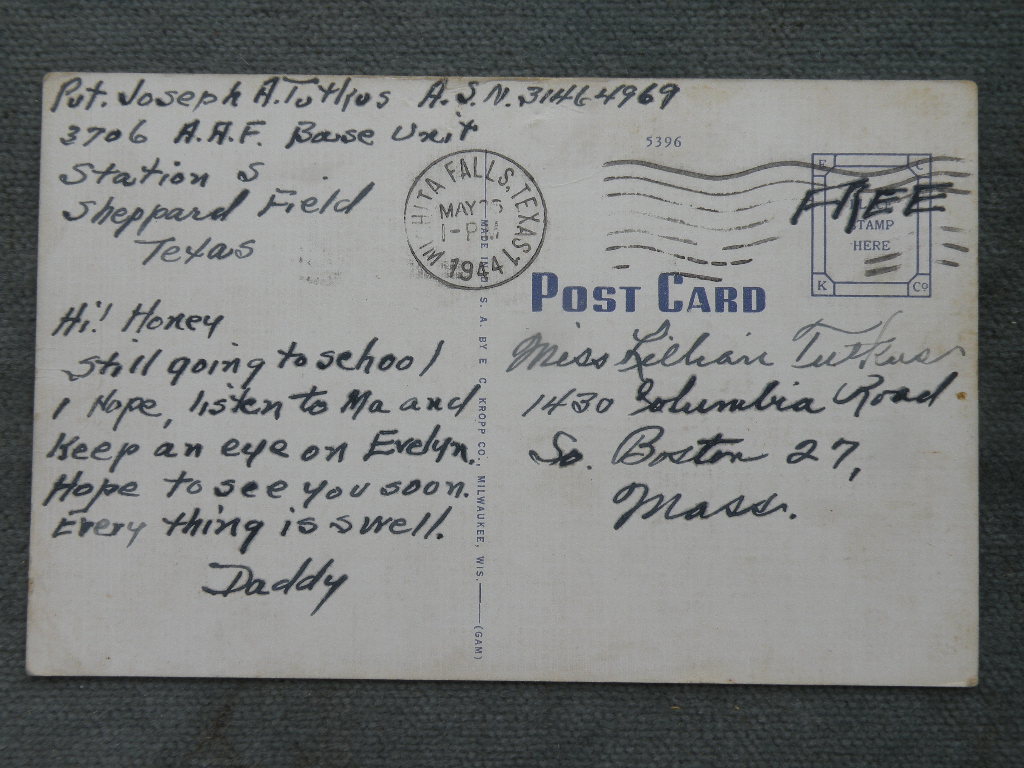 Pvt. Joseph A. Tutkus A.S.N. 31464969
3706 A.A.F. Base Unit
Station S
Sheppard Field
Texas
Hi! Honey
Still going to school
I Hope, listen to Ma and
Keep an eye on Evelyn.
Hope to see you soon.
Every thing is swell.
Daddy
WICHITA FALLS, TEXAS
MAY
1-PM
1944
MADE IN U. S. A. BY E. C. KROPP CO., MILWAUKEE, WIS. (GAM)
5396
FREE
STAMP
HERE
E C
K Co
POST CARD
Miss Lillian Tutkus
1430 Columbia Road
So. Boston 27,
Mass.